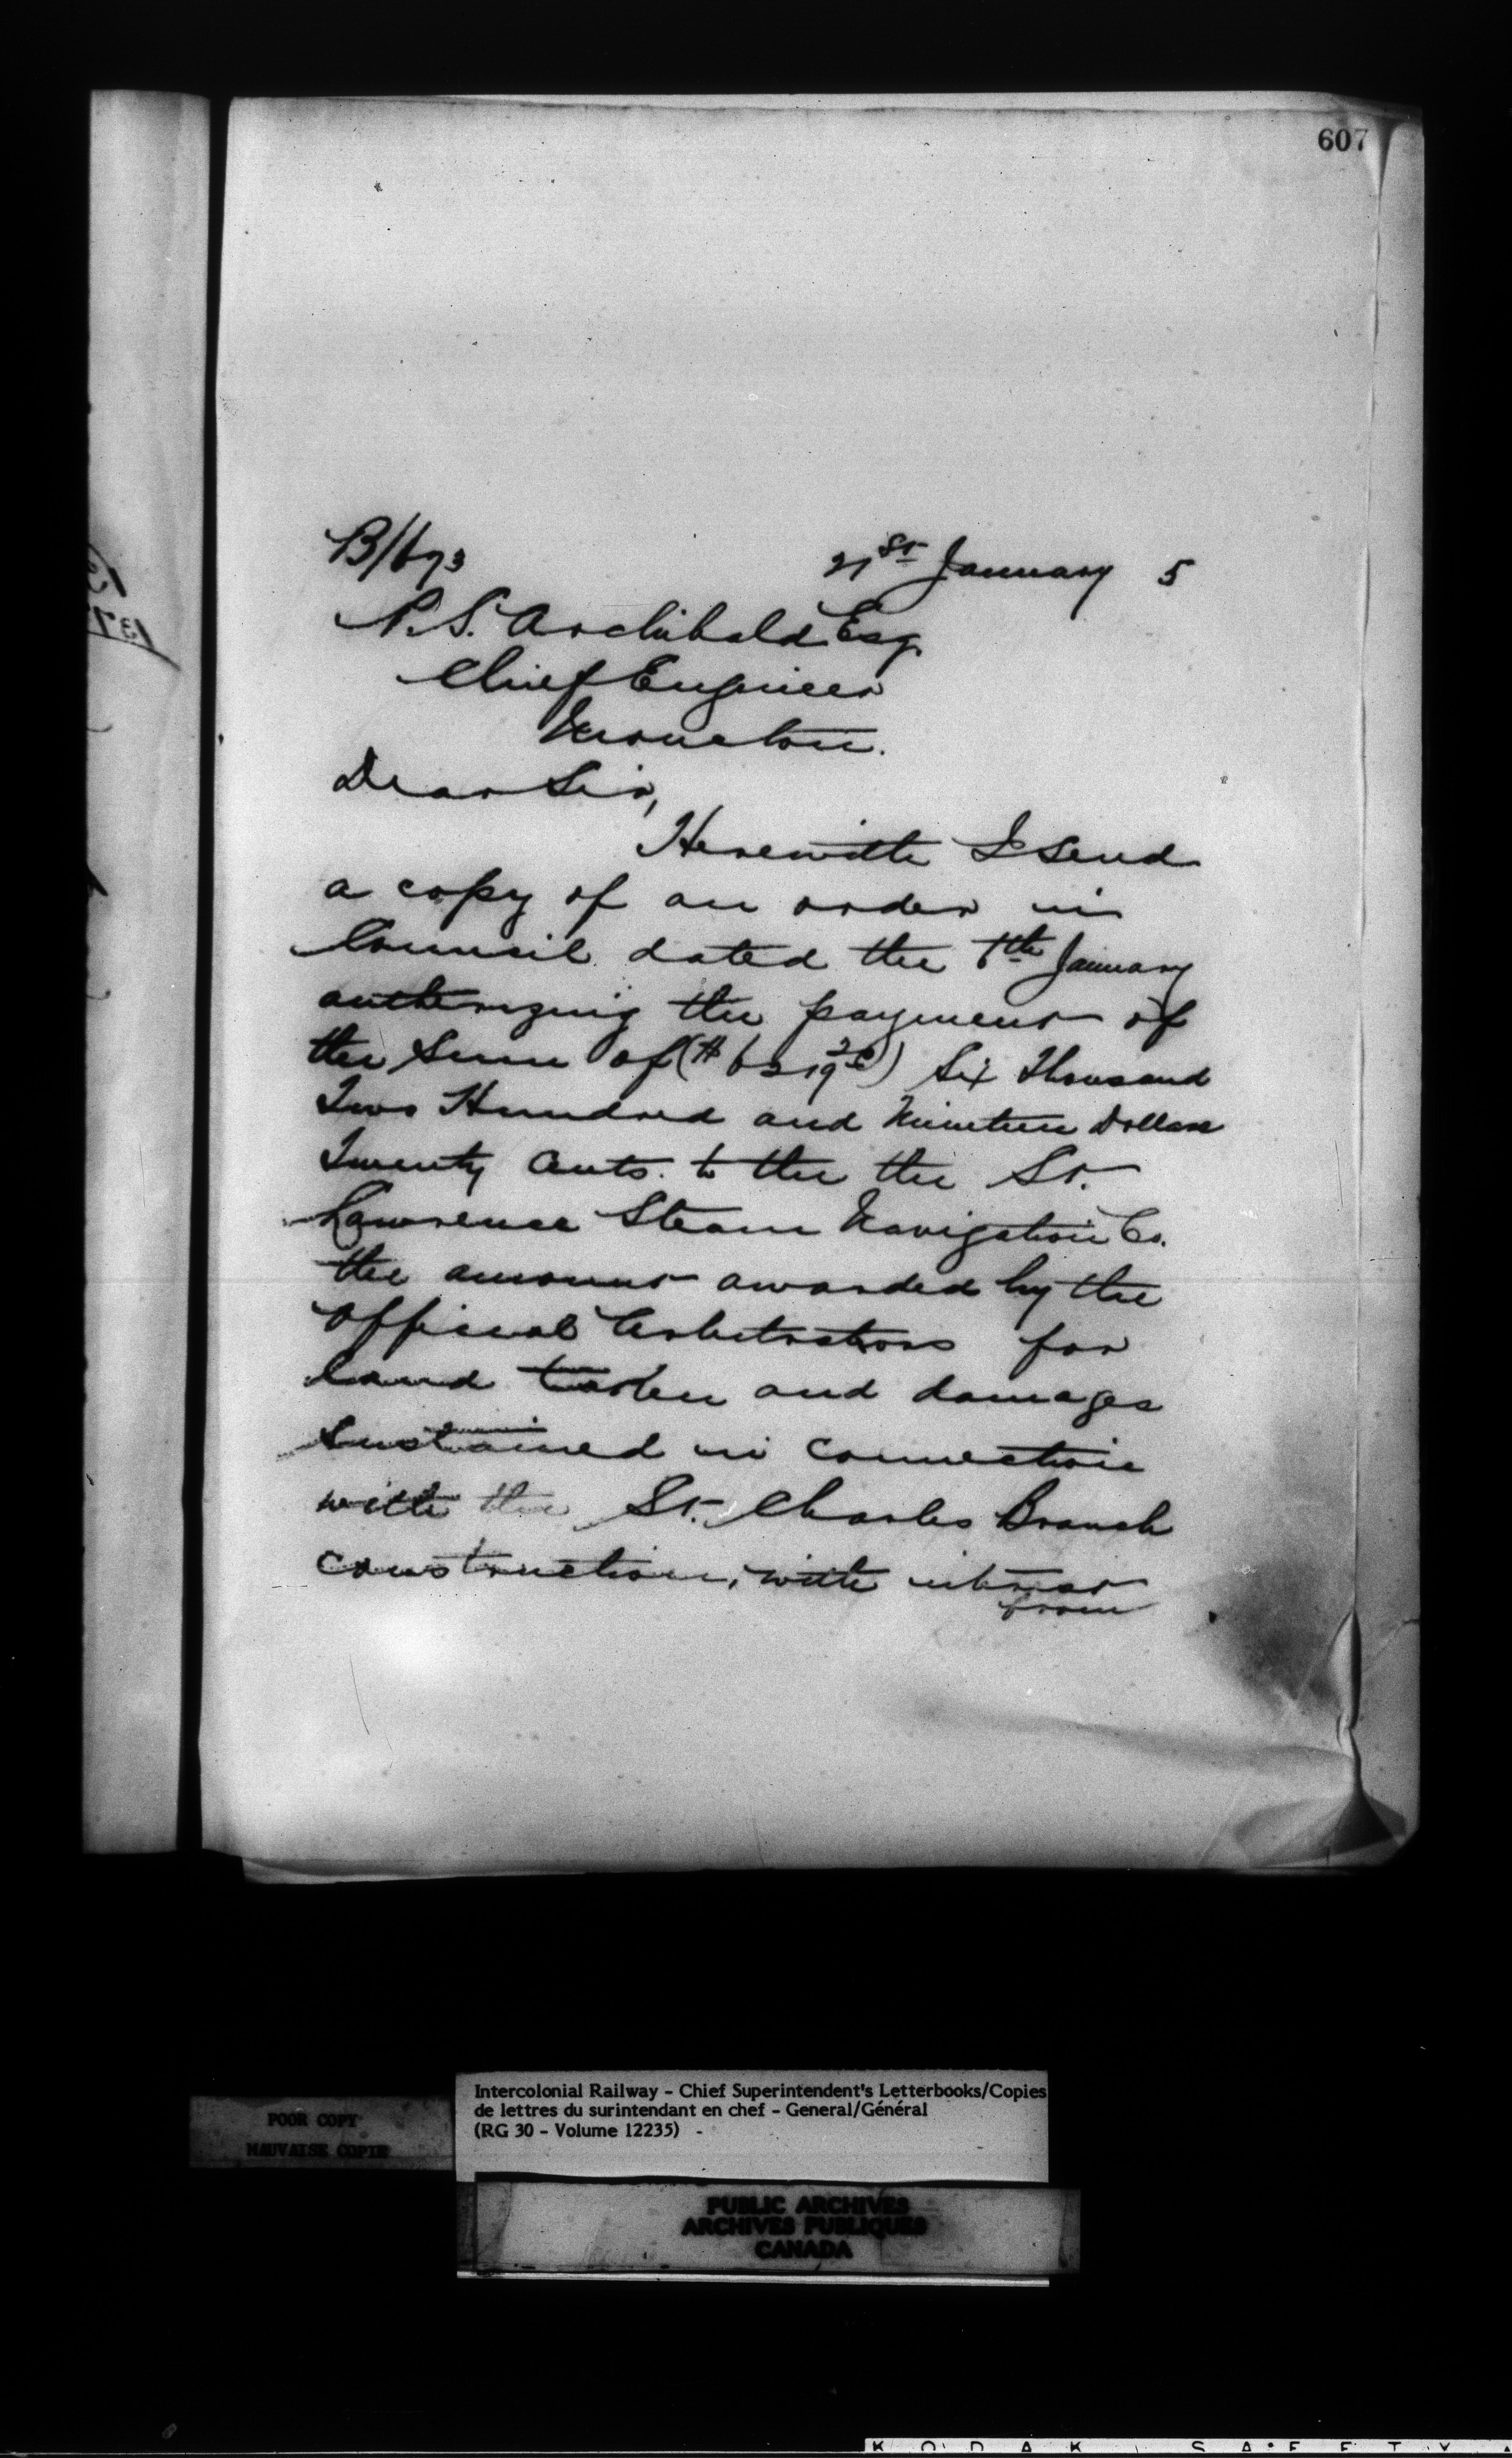 607
B/673 21st January 5
P.S. Archibald Esq.
Chief Engineer
Moncton.
Dear Sir,
Herewith I send
a copy of an order in
Council dated the 6th January
authorizing the payment of
the sum of ($6219 20) Six Thousand
Two Hundred and Nineteen Dollars
Twenty Cents. to the the St.
Lawrence Steam Navigation Co.
the amount awarded by the
Official Arbitrators for
land taken and damages
sustained in connection
with the St. Charles Branch
construction, with interest
from
POOR COPY
MAUVAISE COPIE
Intercolonial Railway - Chief Superintendent's Letterbooks/Copies
de lettres du surintendant en chef - General/Général
(RG 30 - Volume 12235) -
PUBLIC ARCHIVES
ARCHIVES PUBLIQUES
CANADA
KODAK SAFETY